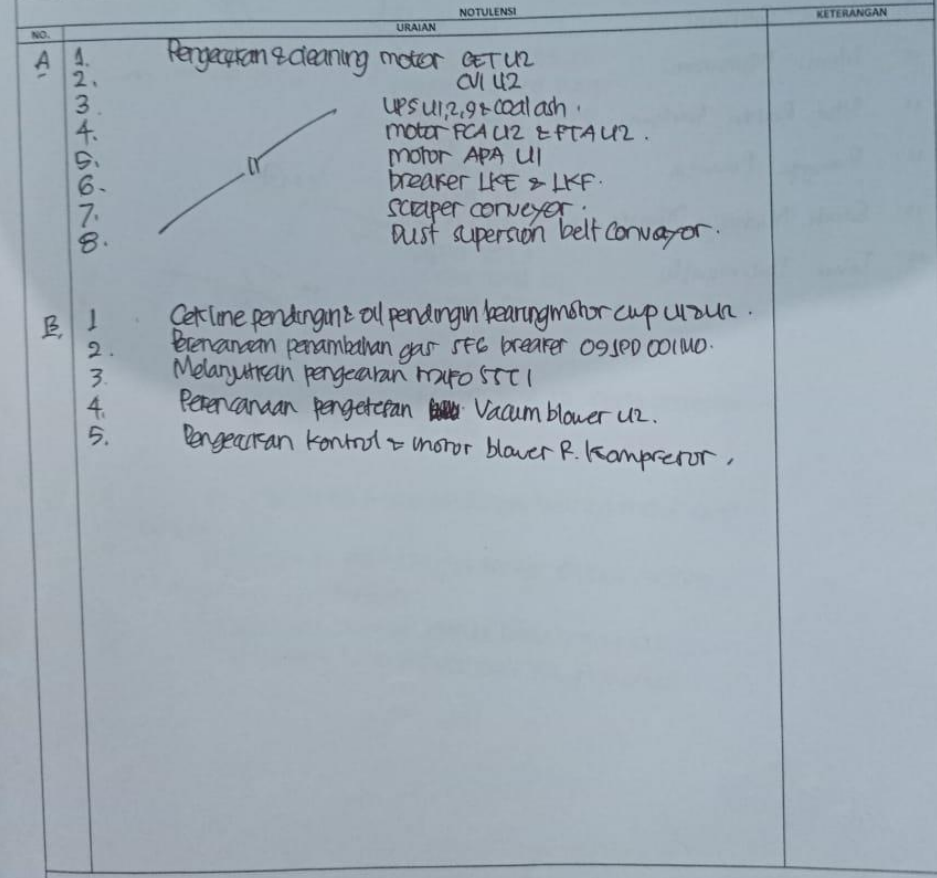 NOTULENSI
NO. URAIAN KETERANGAN
A 1. Pengecekan & cleaning motor CET U2
2. CVI U2
3. UPS U1,2,9 & coal ash.
4. motor FCA U2 & FTA U2.
5. motor APA U1
6. breaker LKE & LKF.
7. scraper conveyor.
8. Dust supersion belt convayor.
B. 1 Cek line pendingin & oil pendingin bearing motor cwp U1 & U2.
2. Perencanaan penambahan gas SF6 breaker 09SPD001MO.
3. Melanjutkan pengecatan trafo SST1
4. Perencanaan pengetesan Vacum blower U2.
5. Pengecekan kontrol & motor blower R. Kompresor.